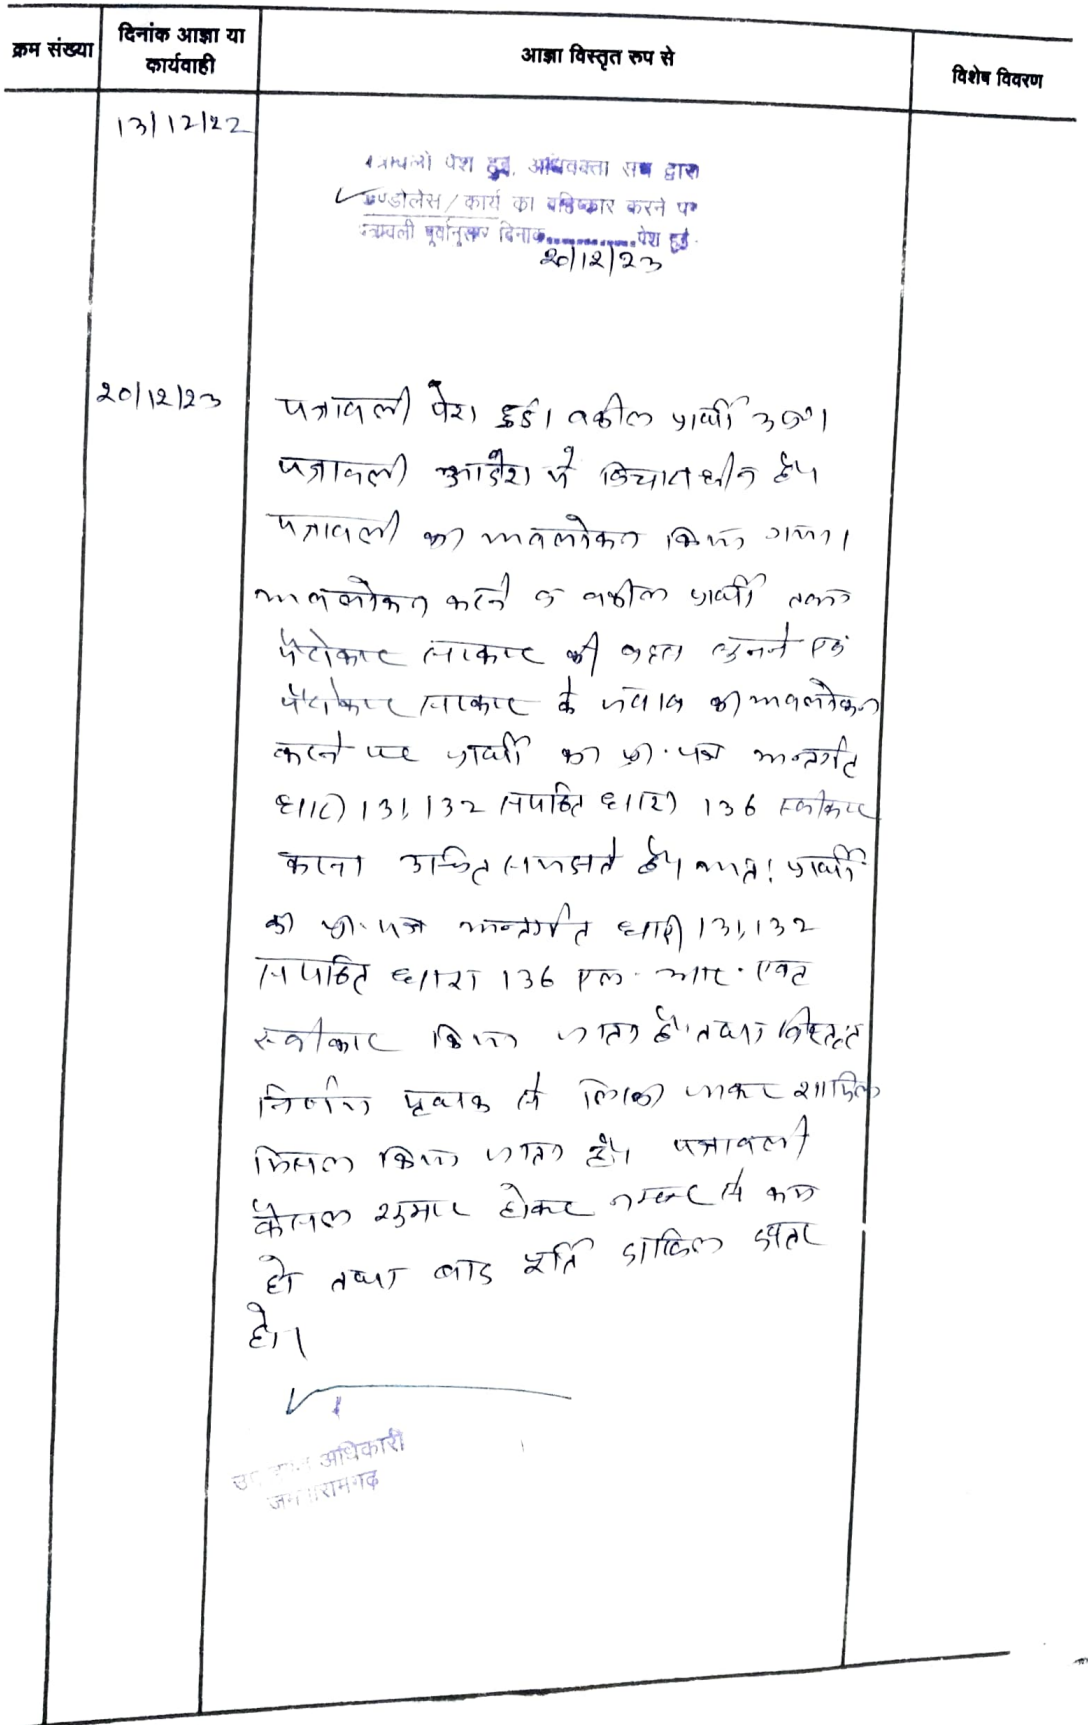 क्रम संख्या
दिनांक आज्ञा या
कार्यवाही
आज्ञा विस्तृत रुप से
विशेष विवरण
13/12/22
पत्रावली पेश हुई. अधिवक्ता संघ द्वारा
कण्डोलेंस / कार्य का बहिष्कार करने पर
पत्रावली पूर्वानुसार दिनांक.............पेश हुई.
20/12/23
20/12/23
पत्रावली पेश हुई। वकील प्रार्थी उप०।
पत्रावली आदेश में विचाराधीन है।
पत्रावली का अवलोकन किया गया।
अवलोकन करने व वकील प्रार्थी तथा
पैरोकार सरकार की बहस सुनने एवं
पैरोकार सरकार के जवाब का अवलोकन
करने पर प्रार्थी का प्रा. पत्र अन्तर्गत
धारा 131, 132 सपठित धारा 136 स्वीकार
करना उचित समझते है। अतः प्रार्थी
का प्रा. पत्र अन्तर्गत धारा 131, 132
सपठित धारा 136 एल. आर. एक्ट
स्वीकार किया जाता है। तथा विस्तृत
निर्णय पृथक से लिखा जाकर शामिल
मिसल किया जाता है। पत्रावली
फैसल शुमार होकर नम्बर से कम
हो तथा बाद पूर्ति दाखिल दफ्तर
हो।
उप अधिकारी
जमवारामगढ़